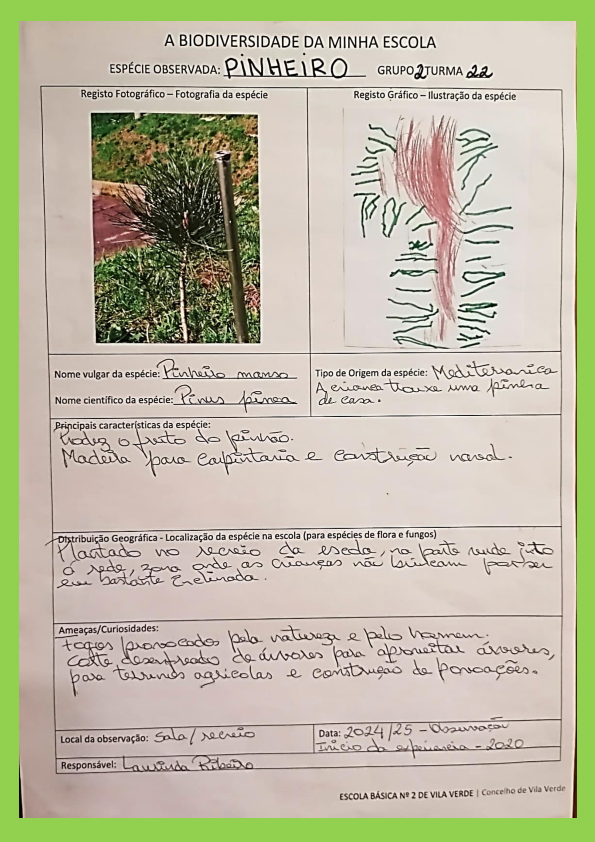 A BIODIVERSIDADE DA MINHA ESCOLA
ESPÉCIE OBSERVADA: PINHEIRO GRUPO 2 TURMA 22
Registo Fotográfico – Fotografia da espécie
Registo Gráfico – Ilustração da espécie
Nome vulgar da espécie: Pinheiro manso
Nome científico da espécie: Pinus pinea
Tipo de Origem da espécie: Mediterranica
A criança trouxe uma pinha
de casa.
Principais características da espécie:
Produz o fruto do pinhão.
Madeira para carpintaria e construção naval.
Distribuição Geográfica - Localização da espécie na escola (para espécies de flora e fungos)
Plantado no recreio da escola, na parte verde junto
à rede, zona onde as crianças não brincam por ser
em bastante inclinada.
Ameaças/Curiosidades:
Fogos provocados pela natureza e pelo homem.
Corte desenfreado de árvores para aproveitar árvores,
para terrenos agrícolas e construção de povoações.
Local da observação: Sala/recreio
Data: 2024/25 - Observação
Início da experiencia - 2020
Responsável: Laurinda Ribeiro
ESCOLA BÁSICA Nº 2 DE VILA VERDE | Concelho de Vila Verde